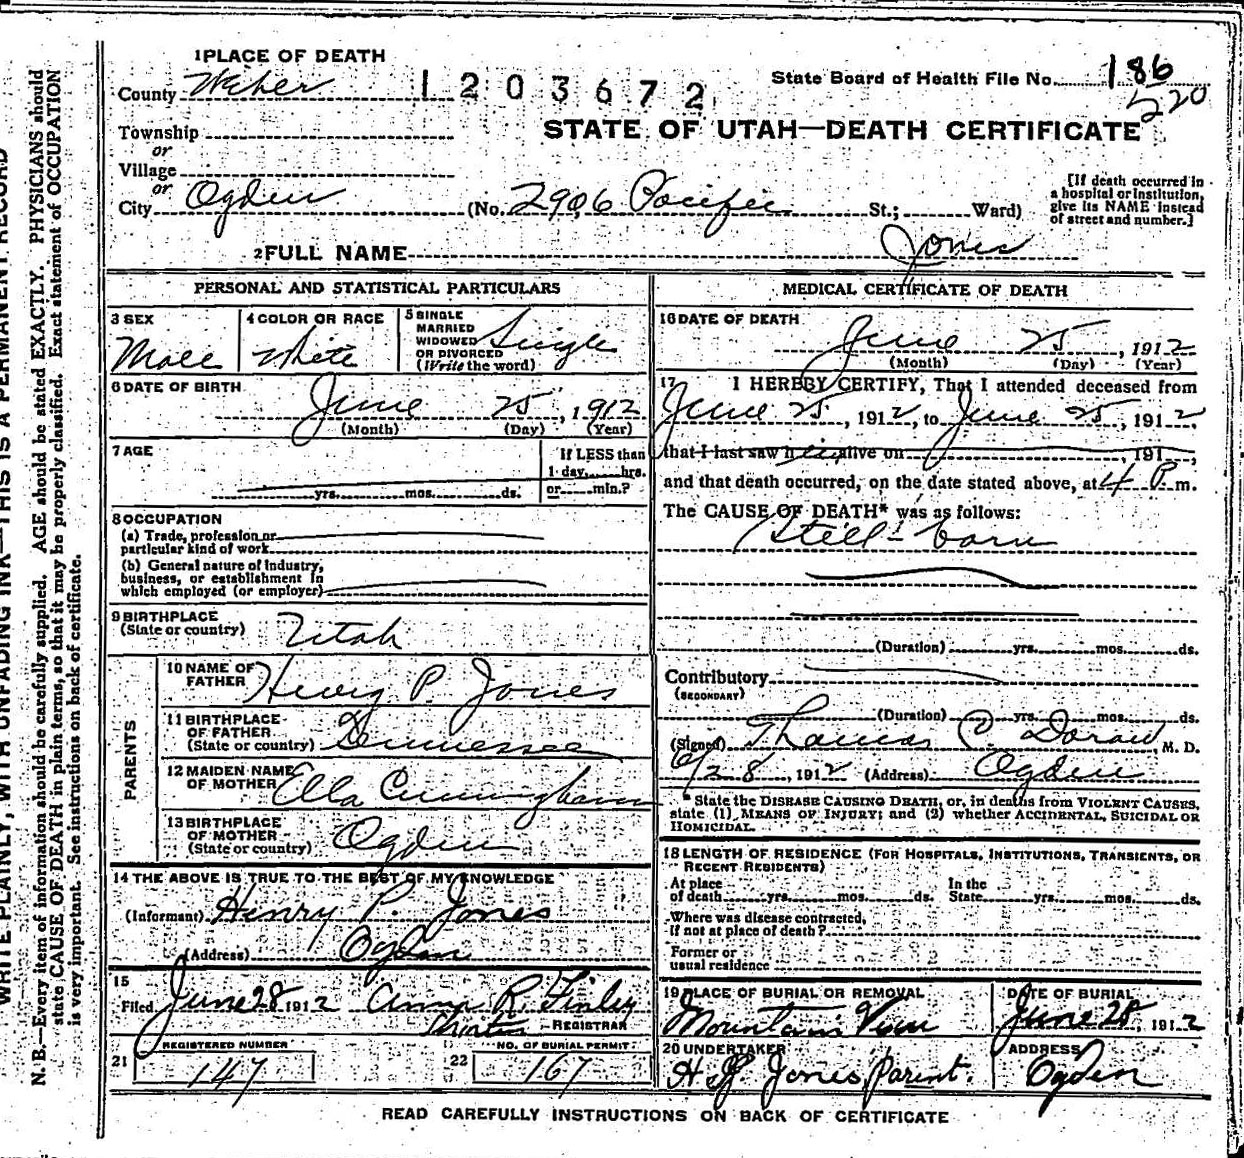 WRITE PLAINLY, WITH UNFADING INK—THIS IS A PERMANENT RECORD
N. B.—Every item of information should be carefully supplied. AGE should be stated EXACTLY. PHYSICIANS should
state CAUSE OF DEATH in plain terms, so that it may be properly classified. Exact statement of OCCUPATION
is very important. See instructions on back of certificate.
1 PLACE OF DEATH
County Weber 1203672
State Board of Health File No. 186
220
Township
or
Village
or
City Ogden (No. 2906 Pacific St.; Ward)
STATE OF UTAH—DEATH CERTIFICATE
[If death occurred in
a hospital or institution,
give its NAME instead
of street and number.]
2 FULL NAME Jones
PERSONAL AND STATISTICAL PARTICULARS
3 SEX Male
4 COLOR OR RACE White
5 SINGLE
MARRIED
WIDOWED
OR DIVORCED
(Write the word) Single
6 DATE OF BIRTH
June 25, 1912
(Month) (Day) (Year)
7 AGE
yrs. mos. ds.
If LESS than
1 day, hrs.
or min.?
8 OCCUPATION
(a) Trade, profession or
particular kind of work
(b) General nature of industry,
business, or establishment in
which employed (or employer)
9 BIRTHPLACE
(State or country) Utah
PARENTS
10 NAME OF
FATHER Henry P. Jones
11 BIRTHPLACE
OF FATHER
(State or country) Tennessee
12 MAIDEN NAME
OF MOTHER Ella Cunningham
13 BIRTHPLACE
OF MOTHER
(State or country) Ogden
14 THE ABOVE IS TRUE TO THE BEST OF MY KNOWLEDGE
(Informant) Henry P. Jones
(Address) Ogden
15
Filed June 28 1912 Anna R. Finley
REGISTRAR
21 REGISTERED NUMBER
147
22 NO. OF BURIAL PERMIT
167
MEDICAL CERTIFICATE OF DEATH
16 DATE OF DEATH
June 25, 1912
(Month) (Day) (Year)
17 I HEREBY CERTIFY, That I attended deceased from
June 25, 1912, to June 25, 1912
that I last saw h alive on , 191 ,
and that death occurred, on the date stated above, at 4 P. m.
The CAUSE OF DEATH* was as follows:
Still-born
(Duration) yrs. mos. ds.
Contributory
(SECONDARY)
(Duration) yrs. mos. ds.
(Signed) Thomas C. Doran, M. D.
6/28, 1912 (Address) Ogden
* State the DISEASE CAUSING DEATH, or, in deaths from VIOLENT CAUSES,
state (1) MEANS OF INJURY; and (2) whether ACCIDENTAL, SUICIDAL OR
HOMICIDAL.
18 LENGTH OF RESIDENCE (FOR HOSPITALS, INSTITUTIONS, TRANSIENTS, OR
RECENT RESIDENTS)
At place
of death yrs. mos. ds.
In the
State yrs. mos. ds.
Where was disease contracted,
if not at place of death?
Former or
usual residence
19 PLACE OF BURIAL OR REMOVAL
Mountain View
DATE OF BURIAL
June 28, 1912
20 UNDERTAKER
H. P. Jones, Parent.
ADDRESS
Ogden
READ CAREFULLY INSTRUCTIONS ON BACK OF CERTIFICATE